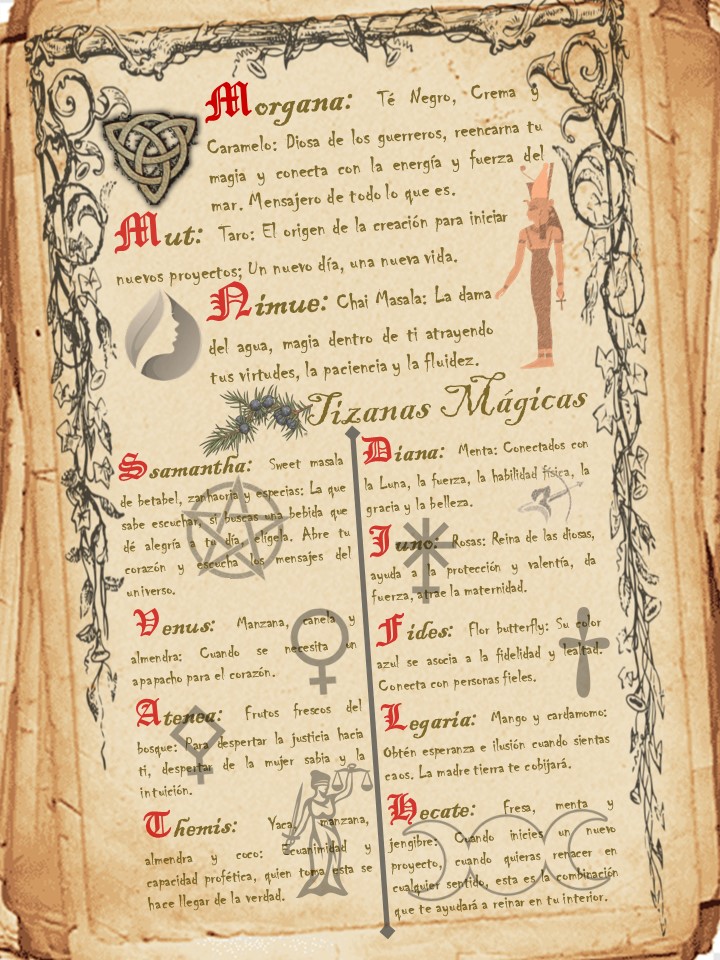 Morgana: Té Negro, Crema y
Caramelo: Diosa de los guerreros, reencarna tu
magia y conecta con la energía y fuerza del
mar. Mensajero de todo lo que es.
Mut: Taro: El origen de la creación para iniciar
nuevos proyectos; Un nuevo día, una nueva vida.
Nimue: Chai Masala: La dama
del agua, magia dentro de ti atrayendo
tus virtudes, la paciencia y la fluidez.
Tizanas Mágicas
Ssamantha: Sweet masala
de betabel, zanhaoria y especias: La que
sabe escuchar, si buscas una bebida que
dé alegría a tu día, elígela. Abre tu
corazón y escucha los mensajes del
universo.
Venus: Manzana, canela y
almendra: Cuando se necesita un
apapacho para el corazón.
Atenea: Frutos frescos del
bosque: Para despertar la justicia hacia
ti, despertar de la mujer sabia y la
intuición.
Themis: Yaca, manzana,
almendra y coco: Ecuanimidad y
capacidad profética, quien toma esta se
hace llegar de la verdad.
Diana: Menta: Conectados con
la Luna, la fuerza, la habilidad física, la
gracia y la belleza.
Juno: Rosas: Reina de las diosas,
ayuda a la protección y valentía, da
fuerza, atrae la maternidad.
Fides: Flor butterfly: Su color
azul se asocia a la fidelidad y lealtad.
Conecta con personas fieles.
Legaria: Mango y cardamomo:
Obtén esperanza e ilusión cuando sientas
caos. La madre tierra te cobijará.
Hecate: Fresa, menta y
jengibre: Cuando inicies un nuevo
proyecto, cuando quieras renacer en
cualquier sentido, esta es la combinación
que te ayudará a reinar en tu interior.